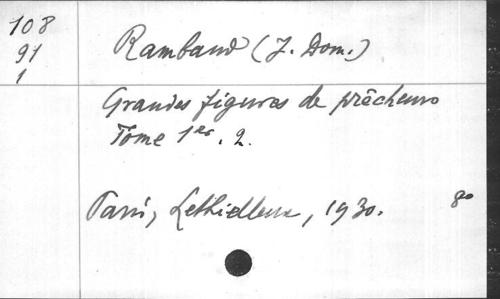 108
91
1
Rambaud (J. Dom.)
Grandes figures de prêcheurs
Tome 1er. 2.
Paris, Lethielleux, 1930. 8o